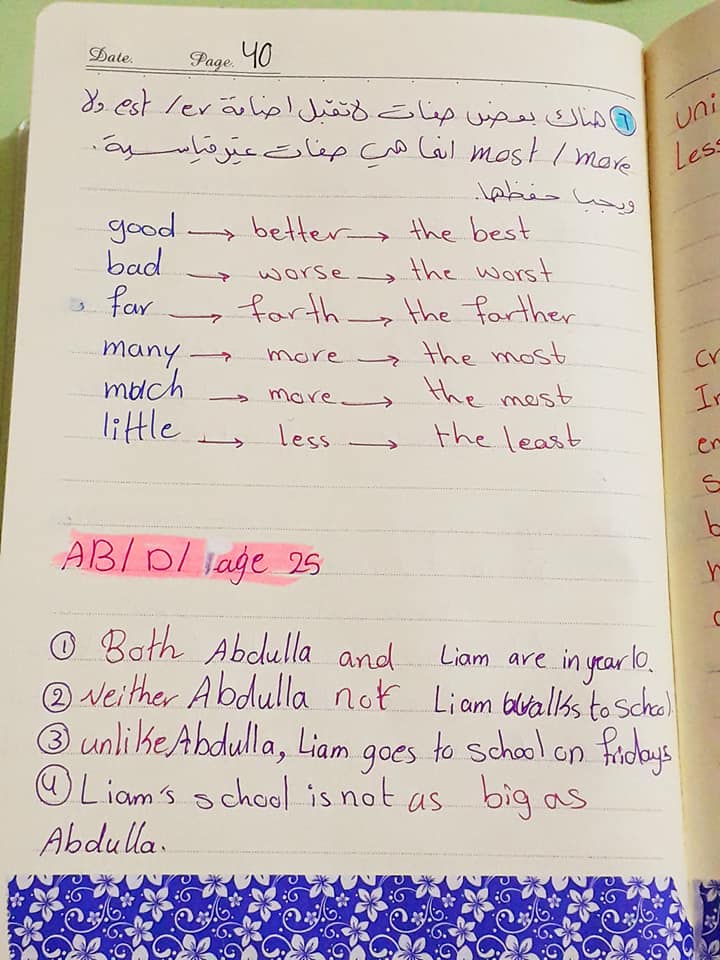 Date. Page. 40
٦ هناك بعض صفات لا تقبل اضافة est / er ولا
most / more انما هي صفات غير قياسية.
ويجب حفظها.
good → better → the best
bad → worse → the worst
far → farth → the farther
many → more → the most
much → more → the most
little → less → the least
AB/ D/ Page 25
① Both Abdulla and Liam are in year 10.
② Neither Abdulla not Liam walks to school
③ unlike Abdulla, Liam goes to school on fridays
④ Liam's school is not as big as
Abdulla.
uni
Less
cr
In
en
s
b